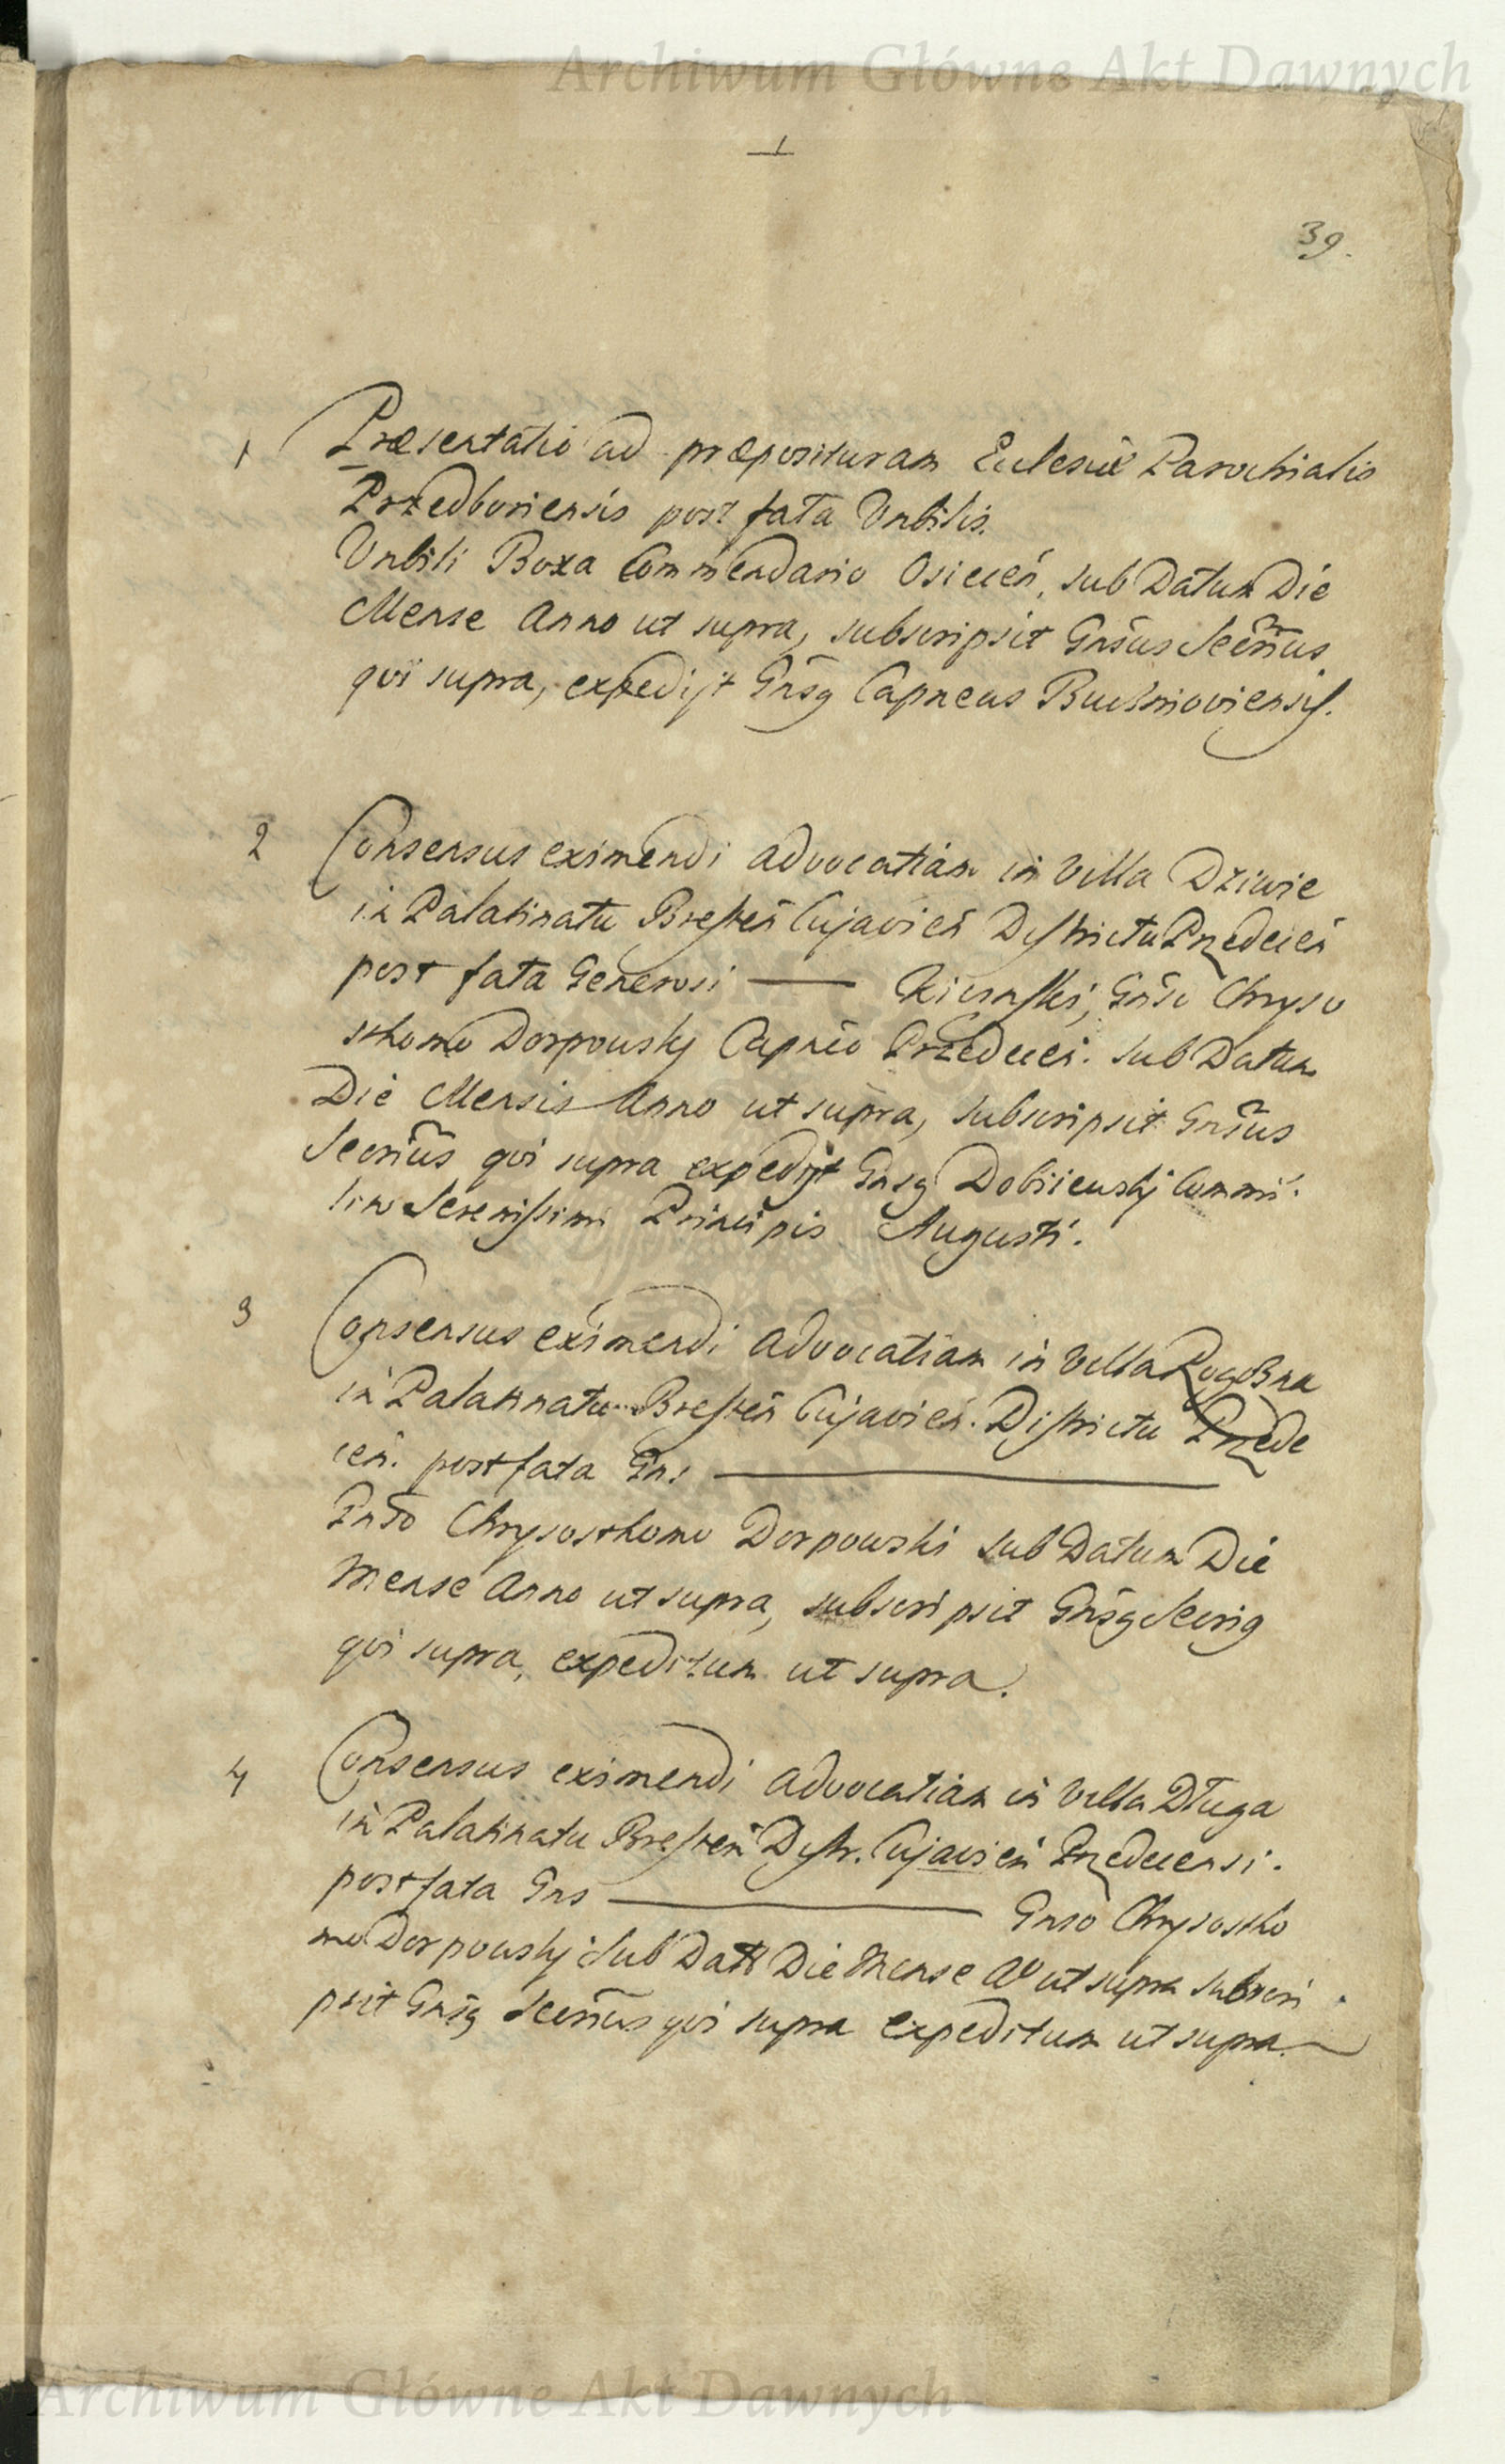 Archiwum Główne Akt Dawnych
1
39.
1 Præsentatio ad præposituram Ecclesiæ Parochialis
Przedboriensis post fata Vnbilis.
Vnbili Boxa Commendario Osiecen̄, sub Datum Die
Mense Anno ut supra, subscripsit Gn̄sus Secr̄ius
qui supra, expedijt Gn̄sg Capneus
2 Consensus eximendi advocatiam in Villa Dziwie
in Palatinatu Bresten̄ Cujavien̄ Districtu Przedecen̄
post fata Generosi —— Gn̄so Chryso
sthomo Dorpowsky Capnēo Przedecen̄. sub Datum
Die Mensis Anno ut supra, subscripsit Gn̄sus
Secr̄ius qui supra expedijt Gnsg Commi
lito Serenissimi Principis Augusti.
3 Consensus eximendi advocatiam in Villa Rogoźna
in Palatinatu Bresten̄ Cujavien̄. Districtu Przede
cen̄. post fata Gns ——
Gnso Chrysosthomo Dorpowski sub Datum Die
Mense Anno ut supra, subscripsit Gnsg Secrig
qui supra, expeditum ut supra.
4 Consensus eximendi advocatiam in Villa Długa
in Palatinatu Bresten̄ Distr. Cujavien̄ Przedecensi.
post fata Gns —— Gnso Chrysostho
mo Dorpowsky sub Datt Die Mense Aº ut supra subscri
psit Gnsg Secrius qui supra expeditum ut supra.
Archiwum Główne Akt Dawnych